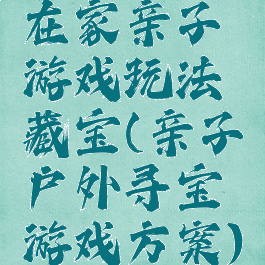 在家亲子
游戏玩法
藏宝(亲子
户外寻宝
游戏方案)